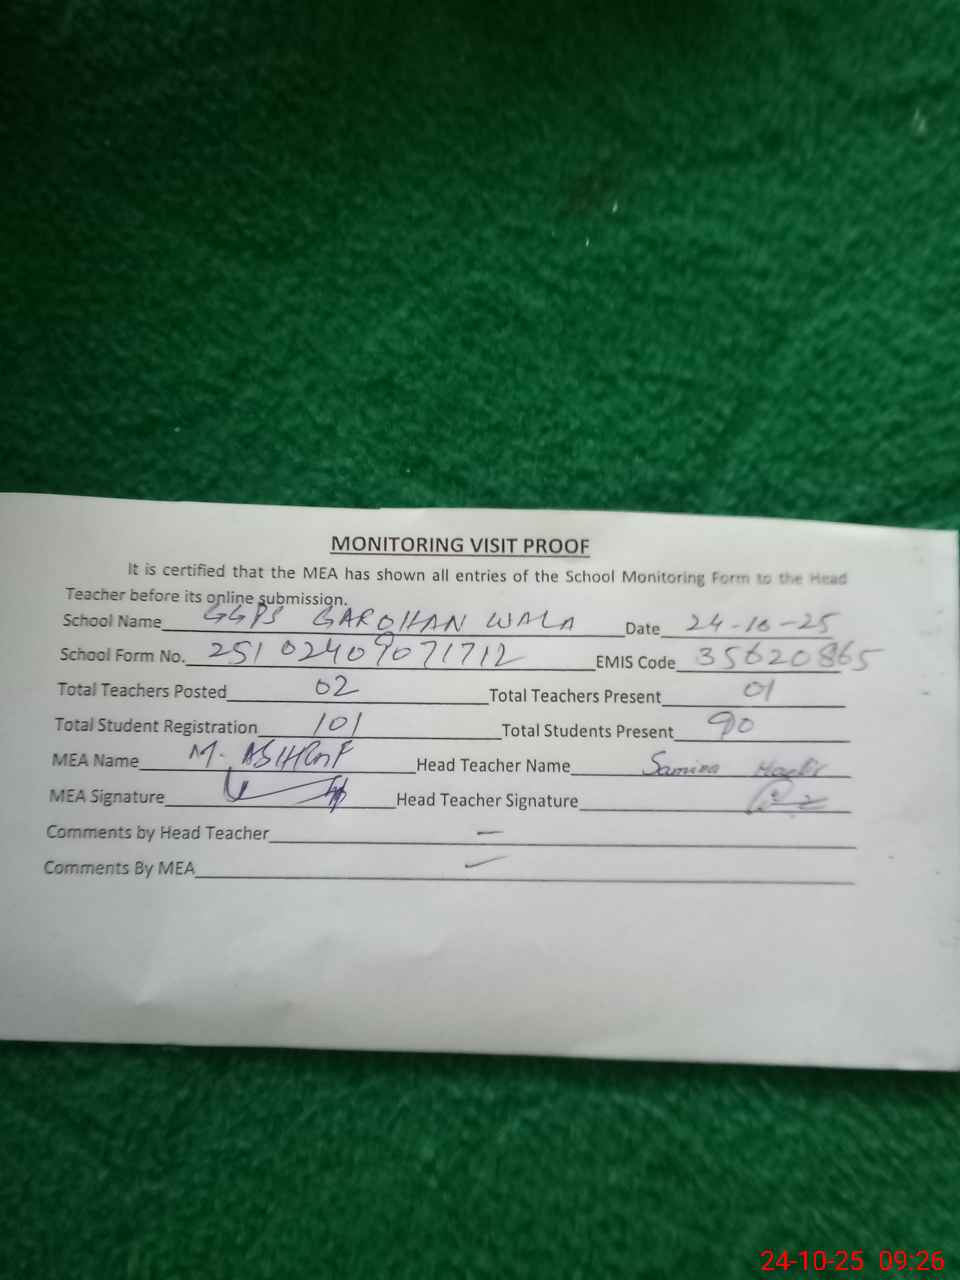 MONITORING VISIT PROOF
It is certified that the MEA has shown all entries of the School Monitoring Form to the Head
Teacher before its online submission.
School Name GGPS GAROHAN WALA Date 24-10-25
School Form No. 25102409071712 EMIS Code 35620865
Total Teachers Posted 02 Total Teachers Present 01
Total Student Registration 101 Total Students Present 90
MEA Name M. ASHRAF Head Teacher Name Samina
MEA Signature Head Teacher Signature
Comments by Head Teacher —
Comments By MEA —
24-10-25 09:26